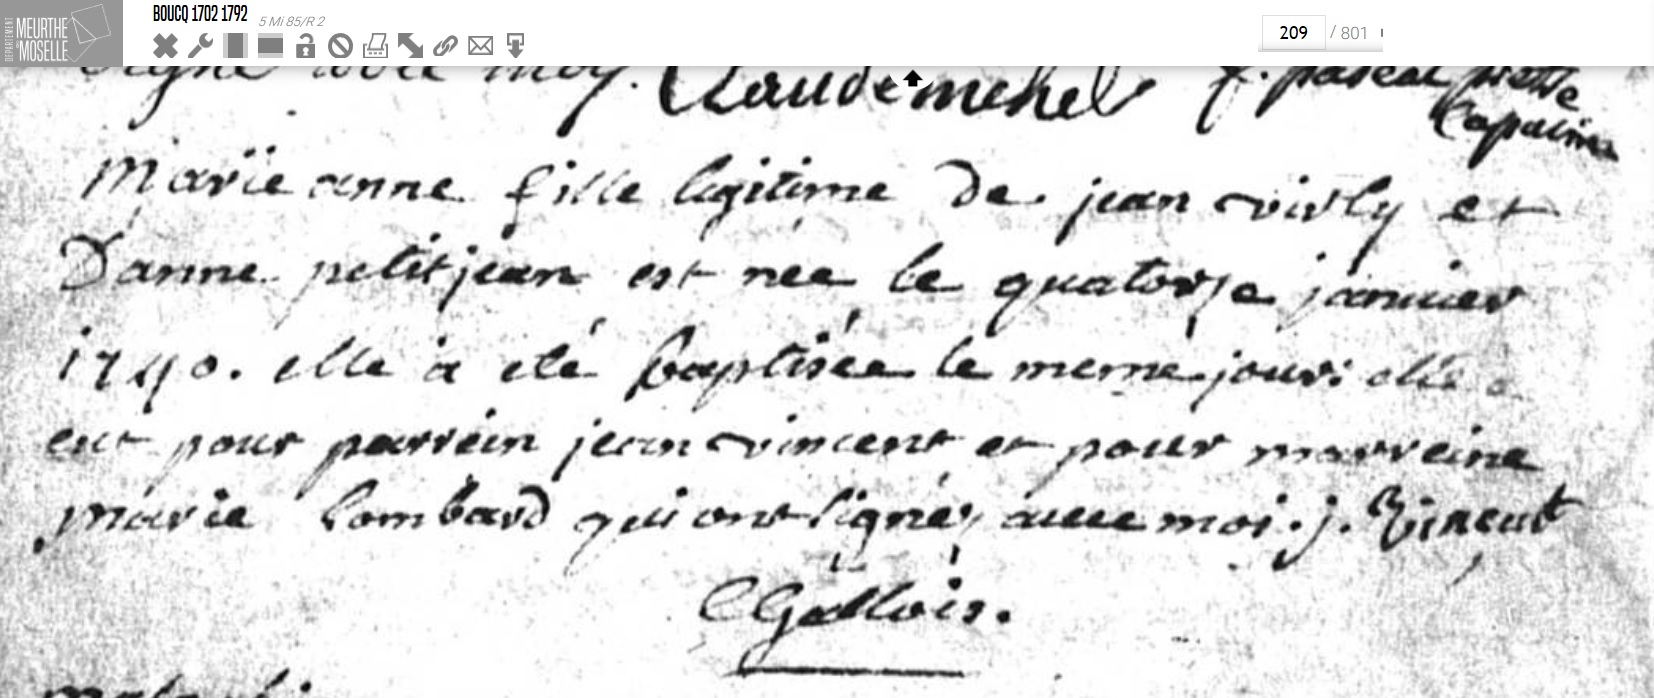 DÉPARTEMENT MEURTHE & MOSELLE
BOUCQ 1702 1792 5 Mi 85/R 2
209 / 801
signé avec moy. Claude michel f. pascal
Capucin
Marie anne fille legitime de jean virly et
Danne petitjean est née le quatorse janvier
1740. elle a eté baptisée le meme jour: elle a
eut pour parrein jean vincent et pour marreine
marie lombard qui ont signés avec moi. j. Vincent
C Gallois.